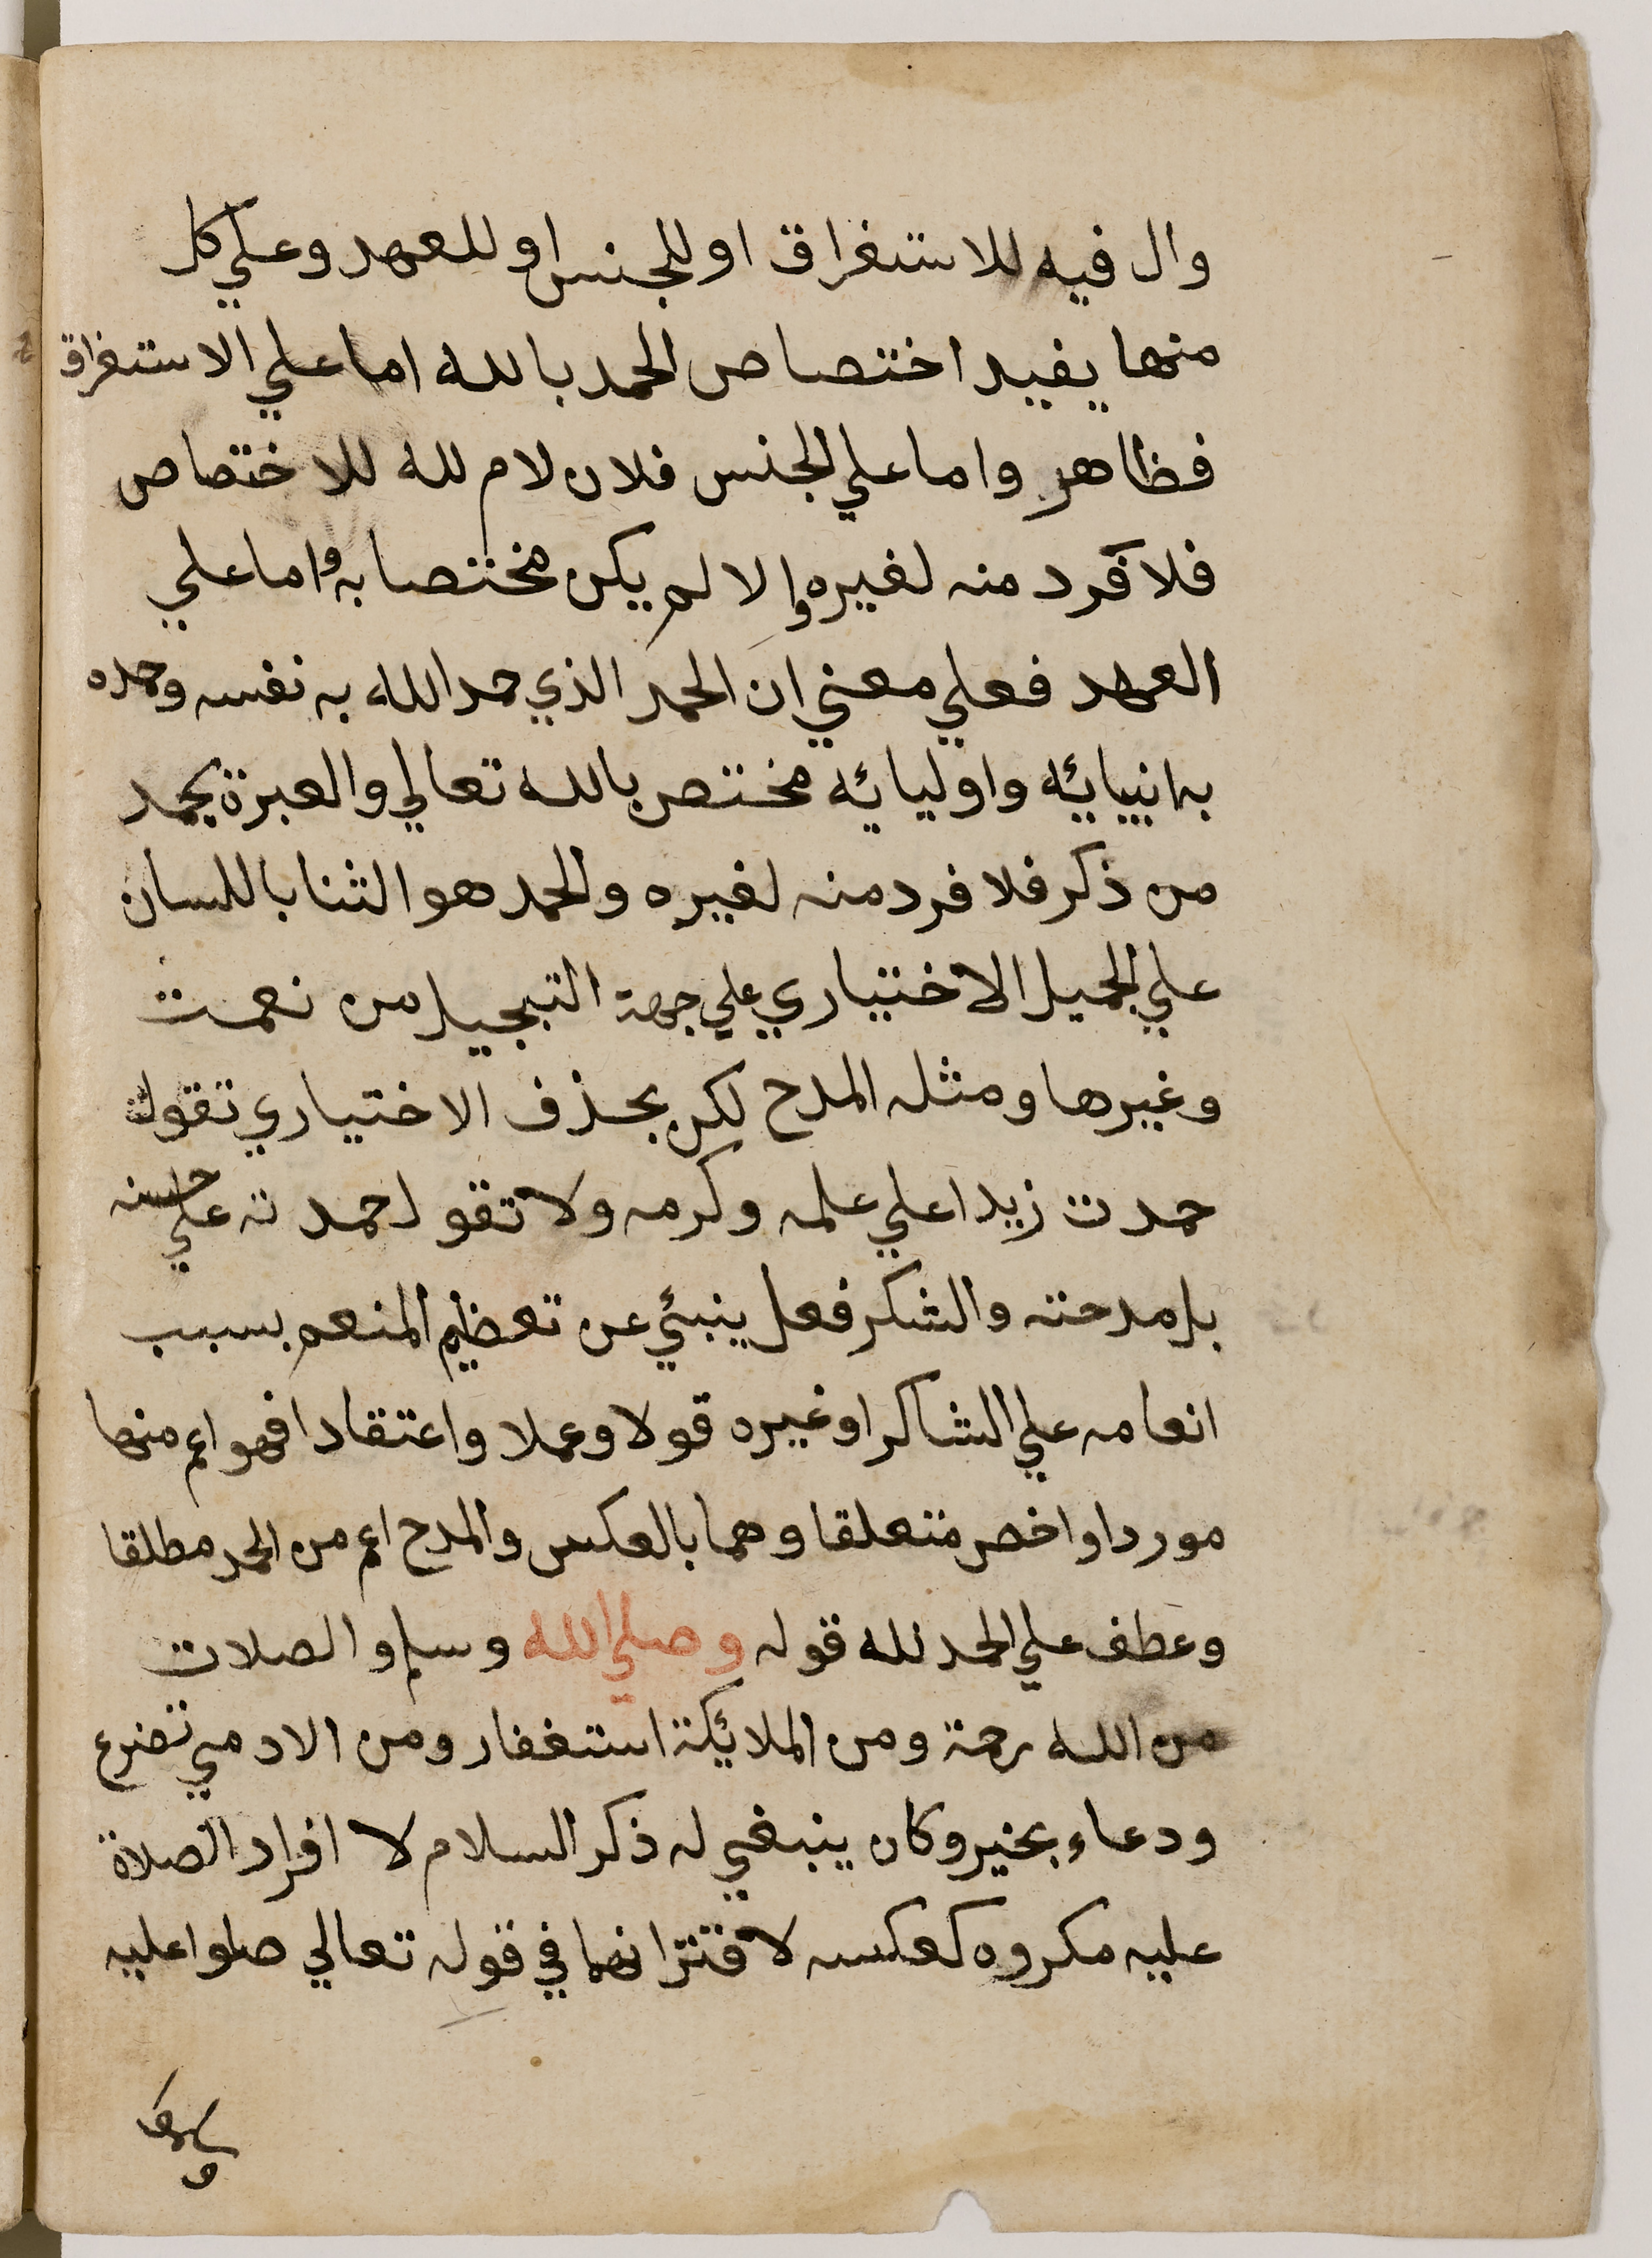 وال فيه للاستغراق او للجنس او للعهد وعلي كل
منها يفيد اختصاص الحمد بالله اما علي الاستغراق
فظاهر واما علي الجنس فلان لام لله للاختصاص
فلا فرد منه لغيره والا لم يكن مختصا به واما علي
العهد فعلي معني ان الحمد الذي حمد الله به نفسه وحمده
به انبيائه واوليائه مختص بالله تعالي والعبرة بحمد
من ذكر فلا فرد منه لغيره والحمد هو الثنا باللسان
علي الجميل الاختياري علي جهة التبجيل من نعمت
وغيرها ومثله المدح لكن بحذف الاختياري تقول
حمدت زيدا علي علمه وكرمه ولا تقول حمدته علي حسنه
بل مدحته والشكر فعل ينبئ عن تعظيم المنعم بسبب
انعامه علي الشاكر او غيره قولا وعملا واعتقادا فهو اعم منهما
موردا واخص متعلقا وهما بالعكس والمدح اعم من الحمد مطلقا
وعطف علي الحمد لله قوله وصلي الله وسلم والصلات
من الله رحمة ومن الملائكة استغفار ومن الادمي تضرع
ودعاء بخير وكان ينبغي له ذكر السلام لا افراد الصلاة
عليه مكروه كعكسه لاقترانهما في قوله تعالي صلوا عليه